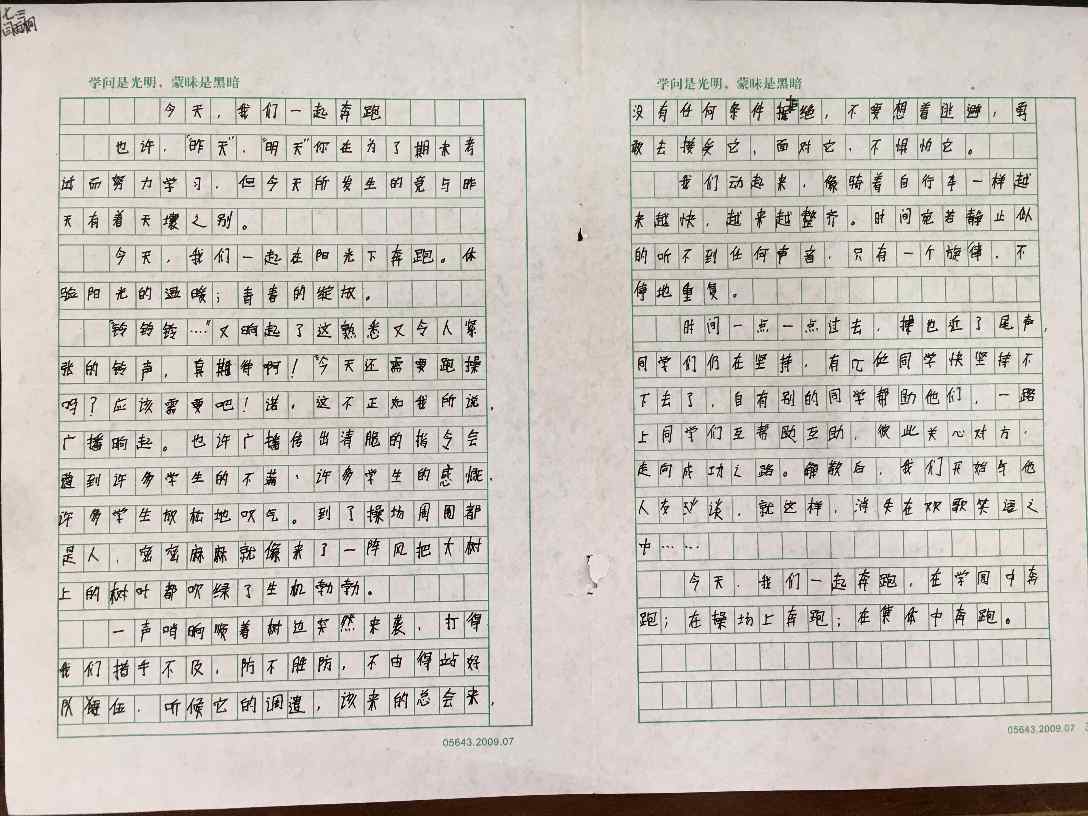 七三
学问是光明，蒙昧是黑暗
今天，我们一起奔跑
也许，“昨天”，“明天”你在为了期末考
试而努力学习，但今天所发生的竟与昨
天有着天壤之别。
今天，我们一起在阳光下奔跑。体
验阳光的温暖；青春的绽放。
“铃铃铃……”又响起了这熟悉又令人紧
张的铃声，真期待啊！“今天还需要跑操
吗？应该需要吧！诺，这不正如我所说，
广播响起。也许广播传出清脆的指令会
遭到许多学生的不满，许多学生的感慨，
许多学生放松地叹气。到了操场周围都
是人，密密麻麻就像来了一阵风把大树
上的树叶都吹绿了生机勃勃。
一声哨响顺着树边突然来袭，打得
我们措手不及，防不胜防，不由得站好
队每位，听候它的调遣，该来的总会来，
05643.2009.07
学问是光明，蒙昧是黑暗
没有任何条件拒绝，不要想着逃避，勇
敢去接受它，面对它，不惧怕它。
我们动起来，像骑着自行车一样越
来越快，越来越整齐。时间宛若静止似
的听不到任何声音，只有一个旋律，不
停地重复。
时间一点一点过去，操也近了尾声，
同学们仍在坚持，有几位同学快坚持不
下去了，自有别的同学帮助他们，一路
上同学们互帮助互助，彼此关心对方，
走向成功之路。解散后，我们开始与他
人交谈，就这样，消失在欢歌笑语之
中……
今天，我们一起奔跑，在学园中奔
跑；在操场上奔跑；在集体中奔跑。
05643.2009.07